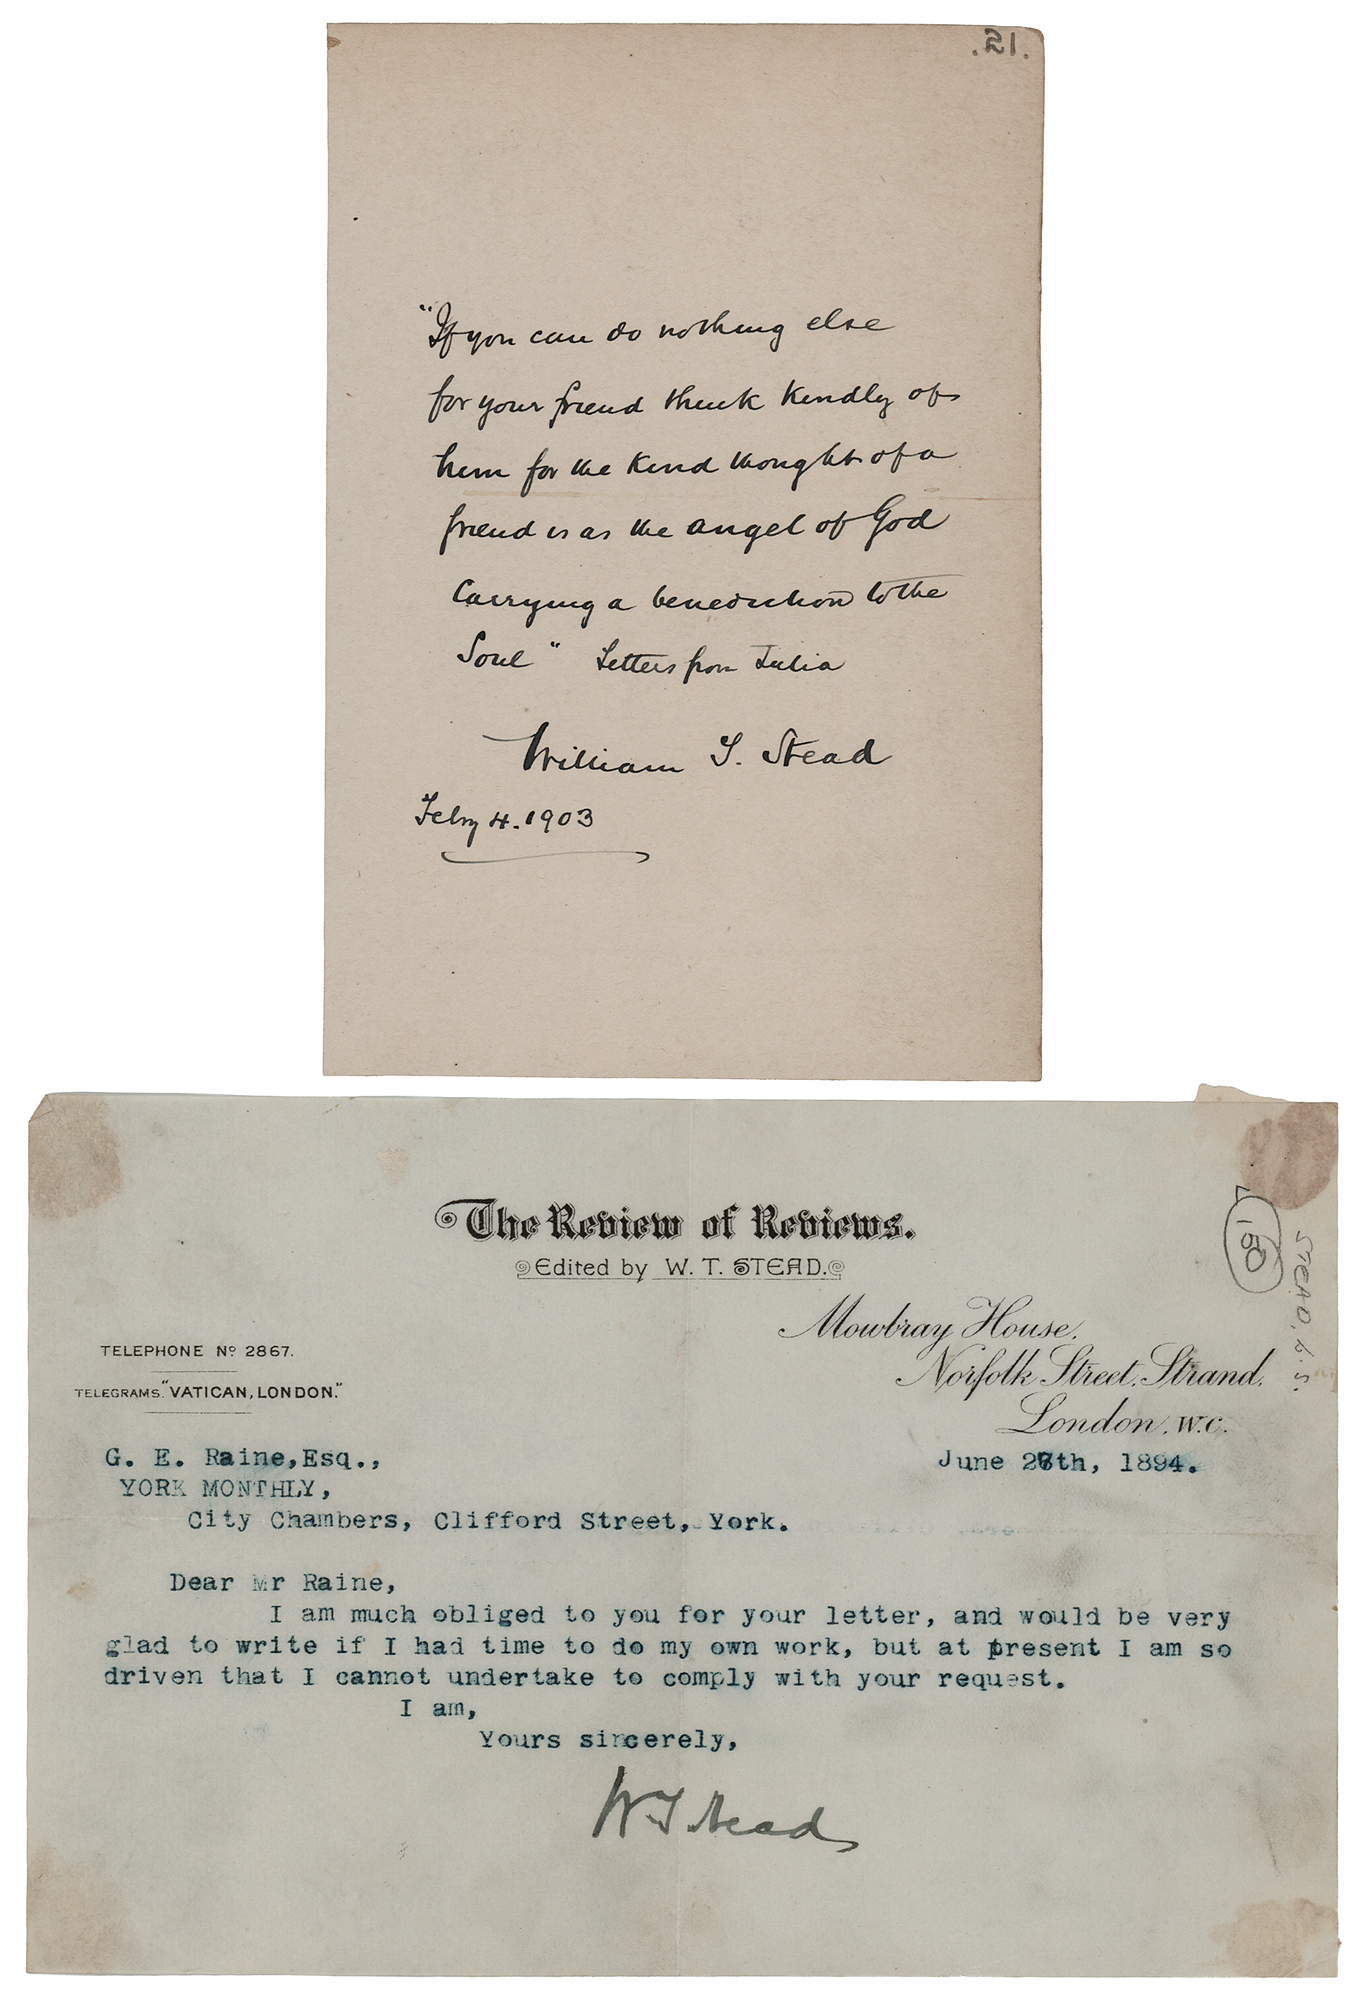 .21.
"If you can do nothing else
for your friend think kindly of
him for the kind thought of a
friend is as the angel of God
carrying a benediction to the
Soul" Letters from Julia
William T. Stead
Feby 4. 1903
The Review of Reviews.
Edited by W. T. STEAD.
Mowbray House,
Norfolk Street, Strand,
London, W.C.
TELEPHONE Nº 2867.
TELEGRAMS. "VATICAN, LONDON."
150
STEAD,
G. E. Raine,Esq.,
June th, 1894.
YORK MONTHLY,
City Chambers, Clifford Street, York.
Dear Mr Raine,
I am much obliged to you for your letter, and would be very
glad to write if I had time to do my own work, but at present I am so
driven that I cannot undertake to comply with your request.
I am,
Yours sincerely,
W T Stead